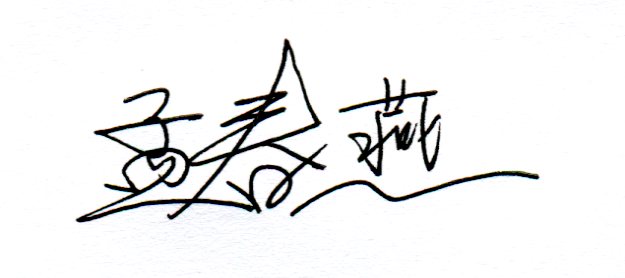 孟春燕